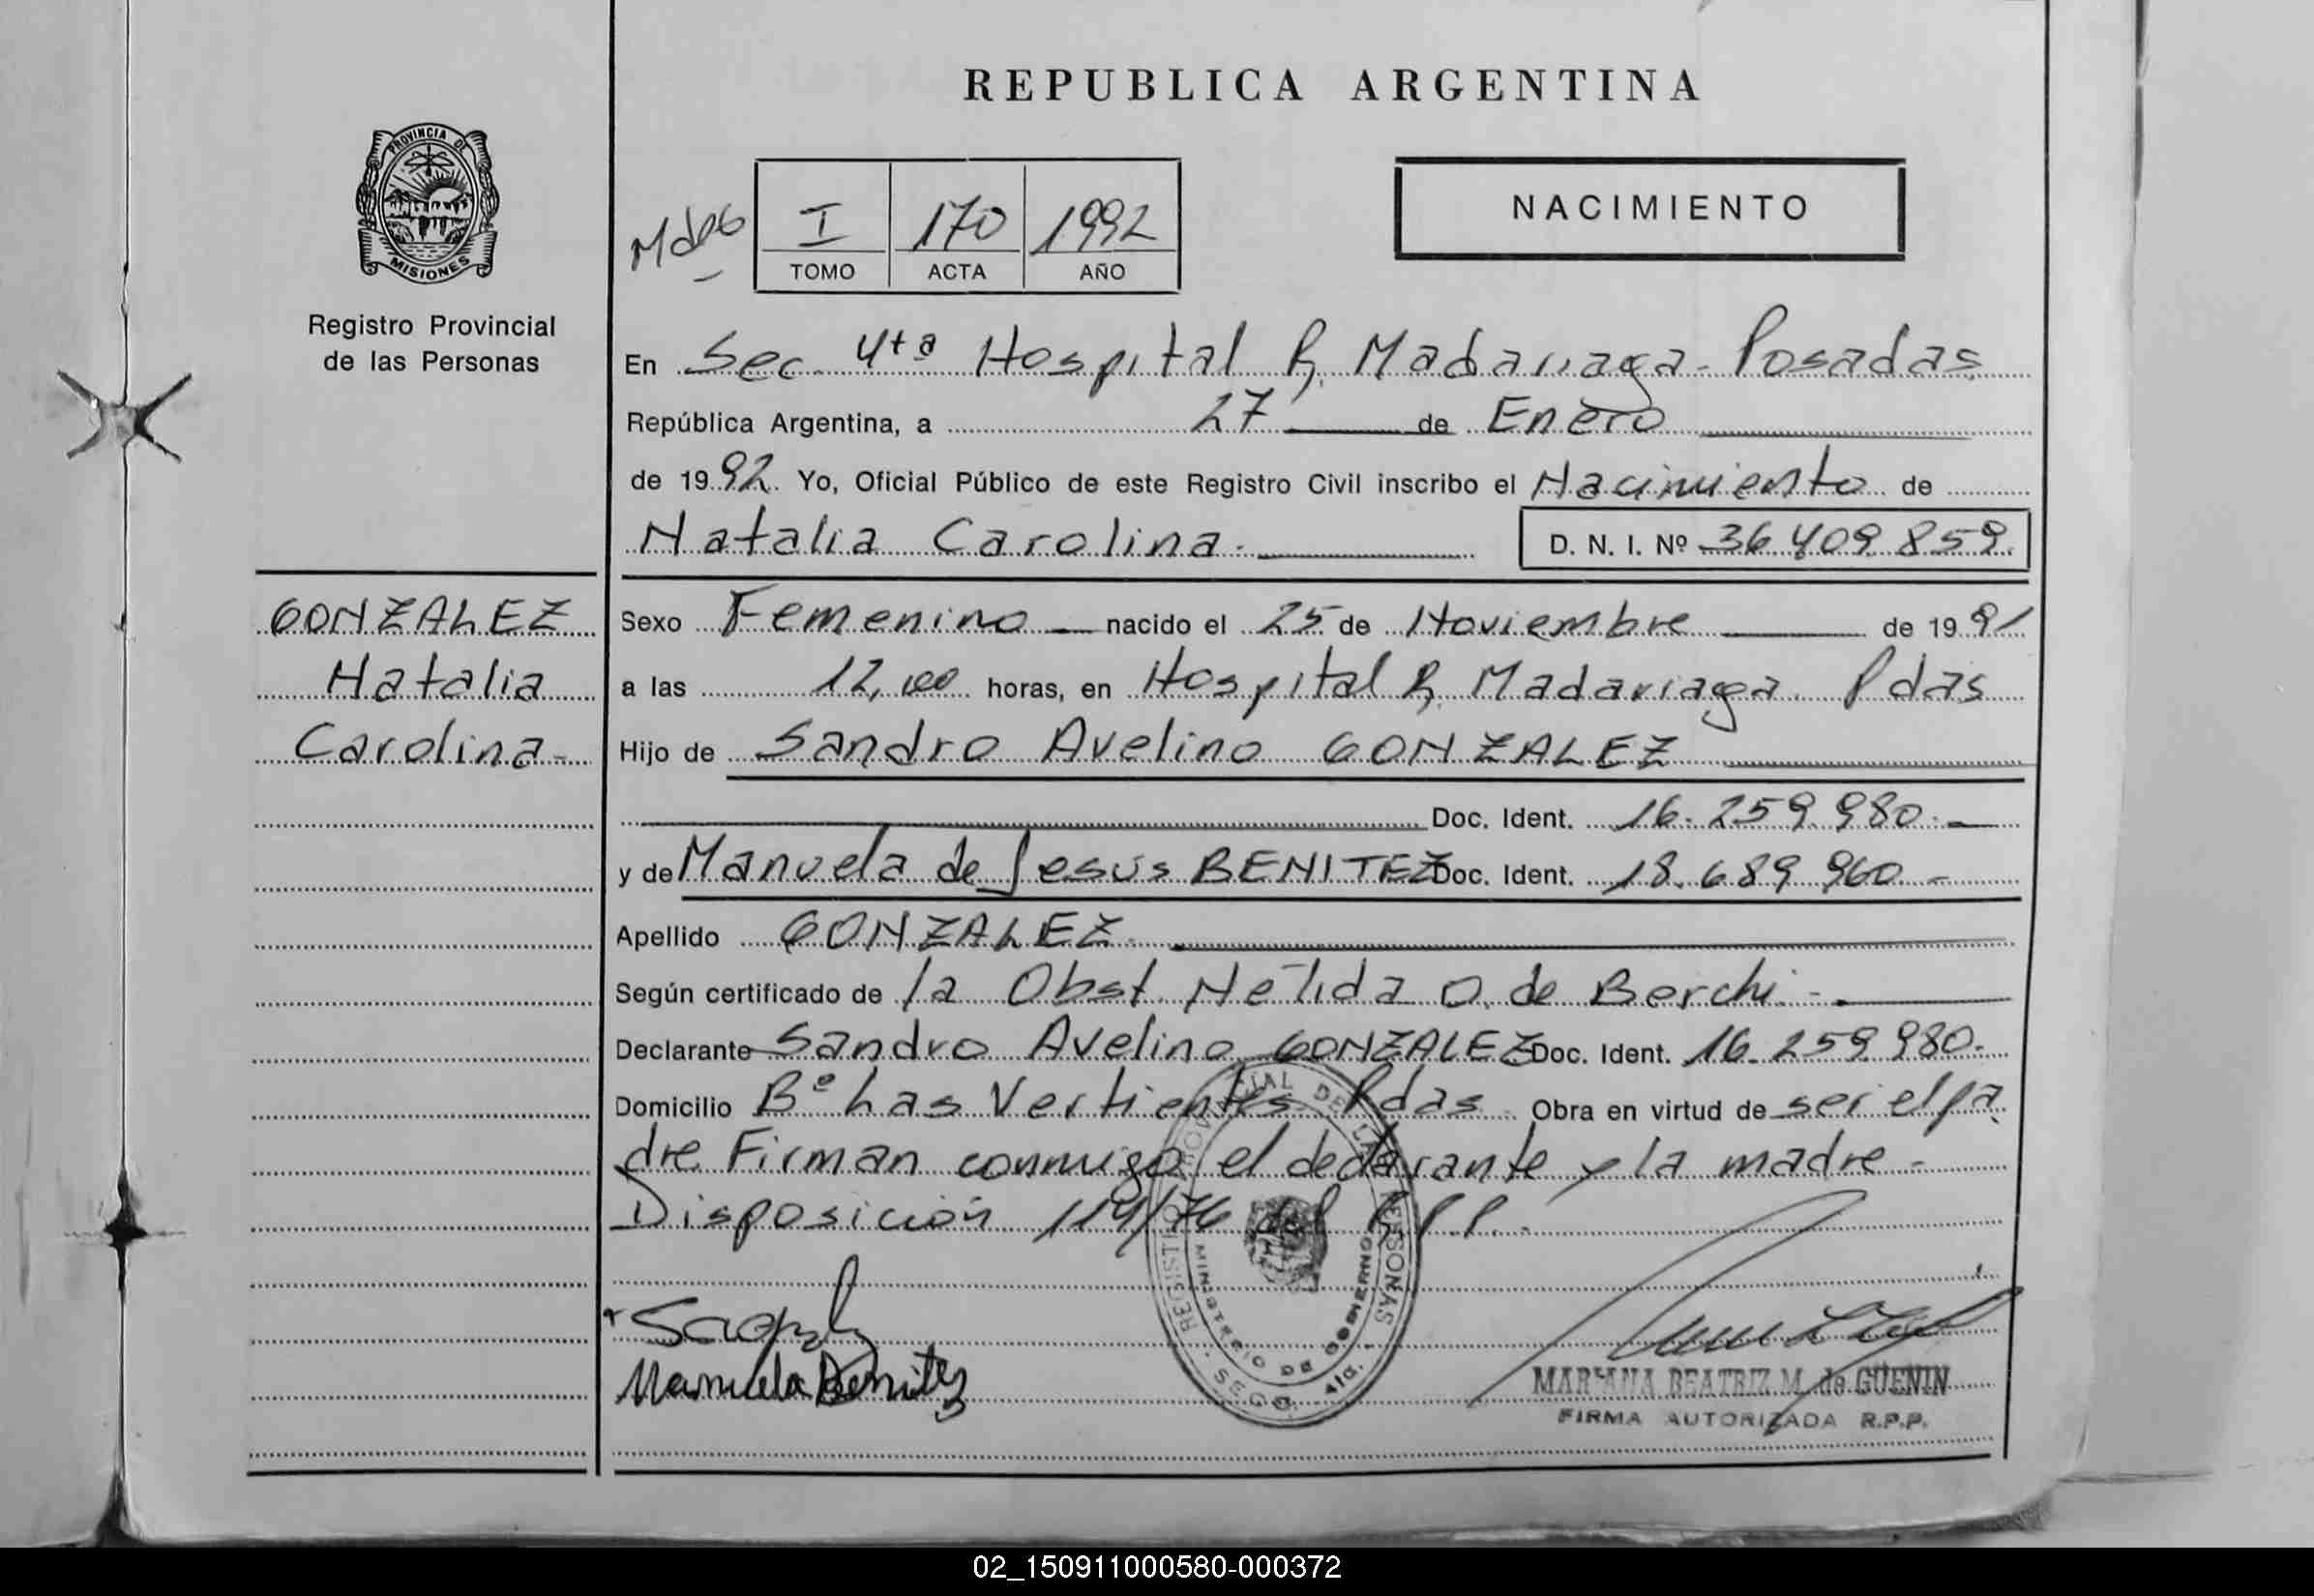 REPUBLICA ARGENTINA
PROVINCIA DE
MISIONES
Registro Provincial
de las Personas
NACIMIENTO
I 170 1992
TOMO ACTA AÑO
En Sec. 4ta Hospital R. Madariaga - Posadas
República Argentina, a 27 de Enero
de 1992. Yo, Oficial Público de este Registro Civil inscribo el Nacimiento de
Natalia Carolina. D. N. I. Nº 36.409.859.
GONZALEZ
Natalia
Carolina-
Sexo Femenino nacido el 25 de Noviembre de 1991
a las 12,00 horas, en Hospital R. Madariaga. Pdas
Hijo de Sandro Avelino GONZALEZ
Doc. Ident. 16.259.980.-
y de Manuela de Jesús BENITEZ Doc. Ident. 18.689.960.-
Apellido GONZALEZ.
Según certificado de la Obst. Nélida O. de Berchi.-
Declarante Sandro Avelino GONZALEZ Doc. Ident. 16.259.980.-
Domicilio Bº Las Vertientes Pdas. Obra en virtud de ser el pa
dre Firman conmigo el declarante y la madre.-
Disposición 114/76 del R.P.P.-
REGISTRO PROVINCIAL DE LAS PERSONAS
MINISTERIO DE GOBIERNO
SECC. 4ta.
Manuela Benitez
MARIANA BEATRIZ M. de GUENIN
FIRMA AUTORIZADA R.P.P.
02_150911000580-000372